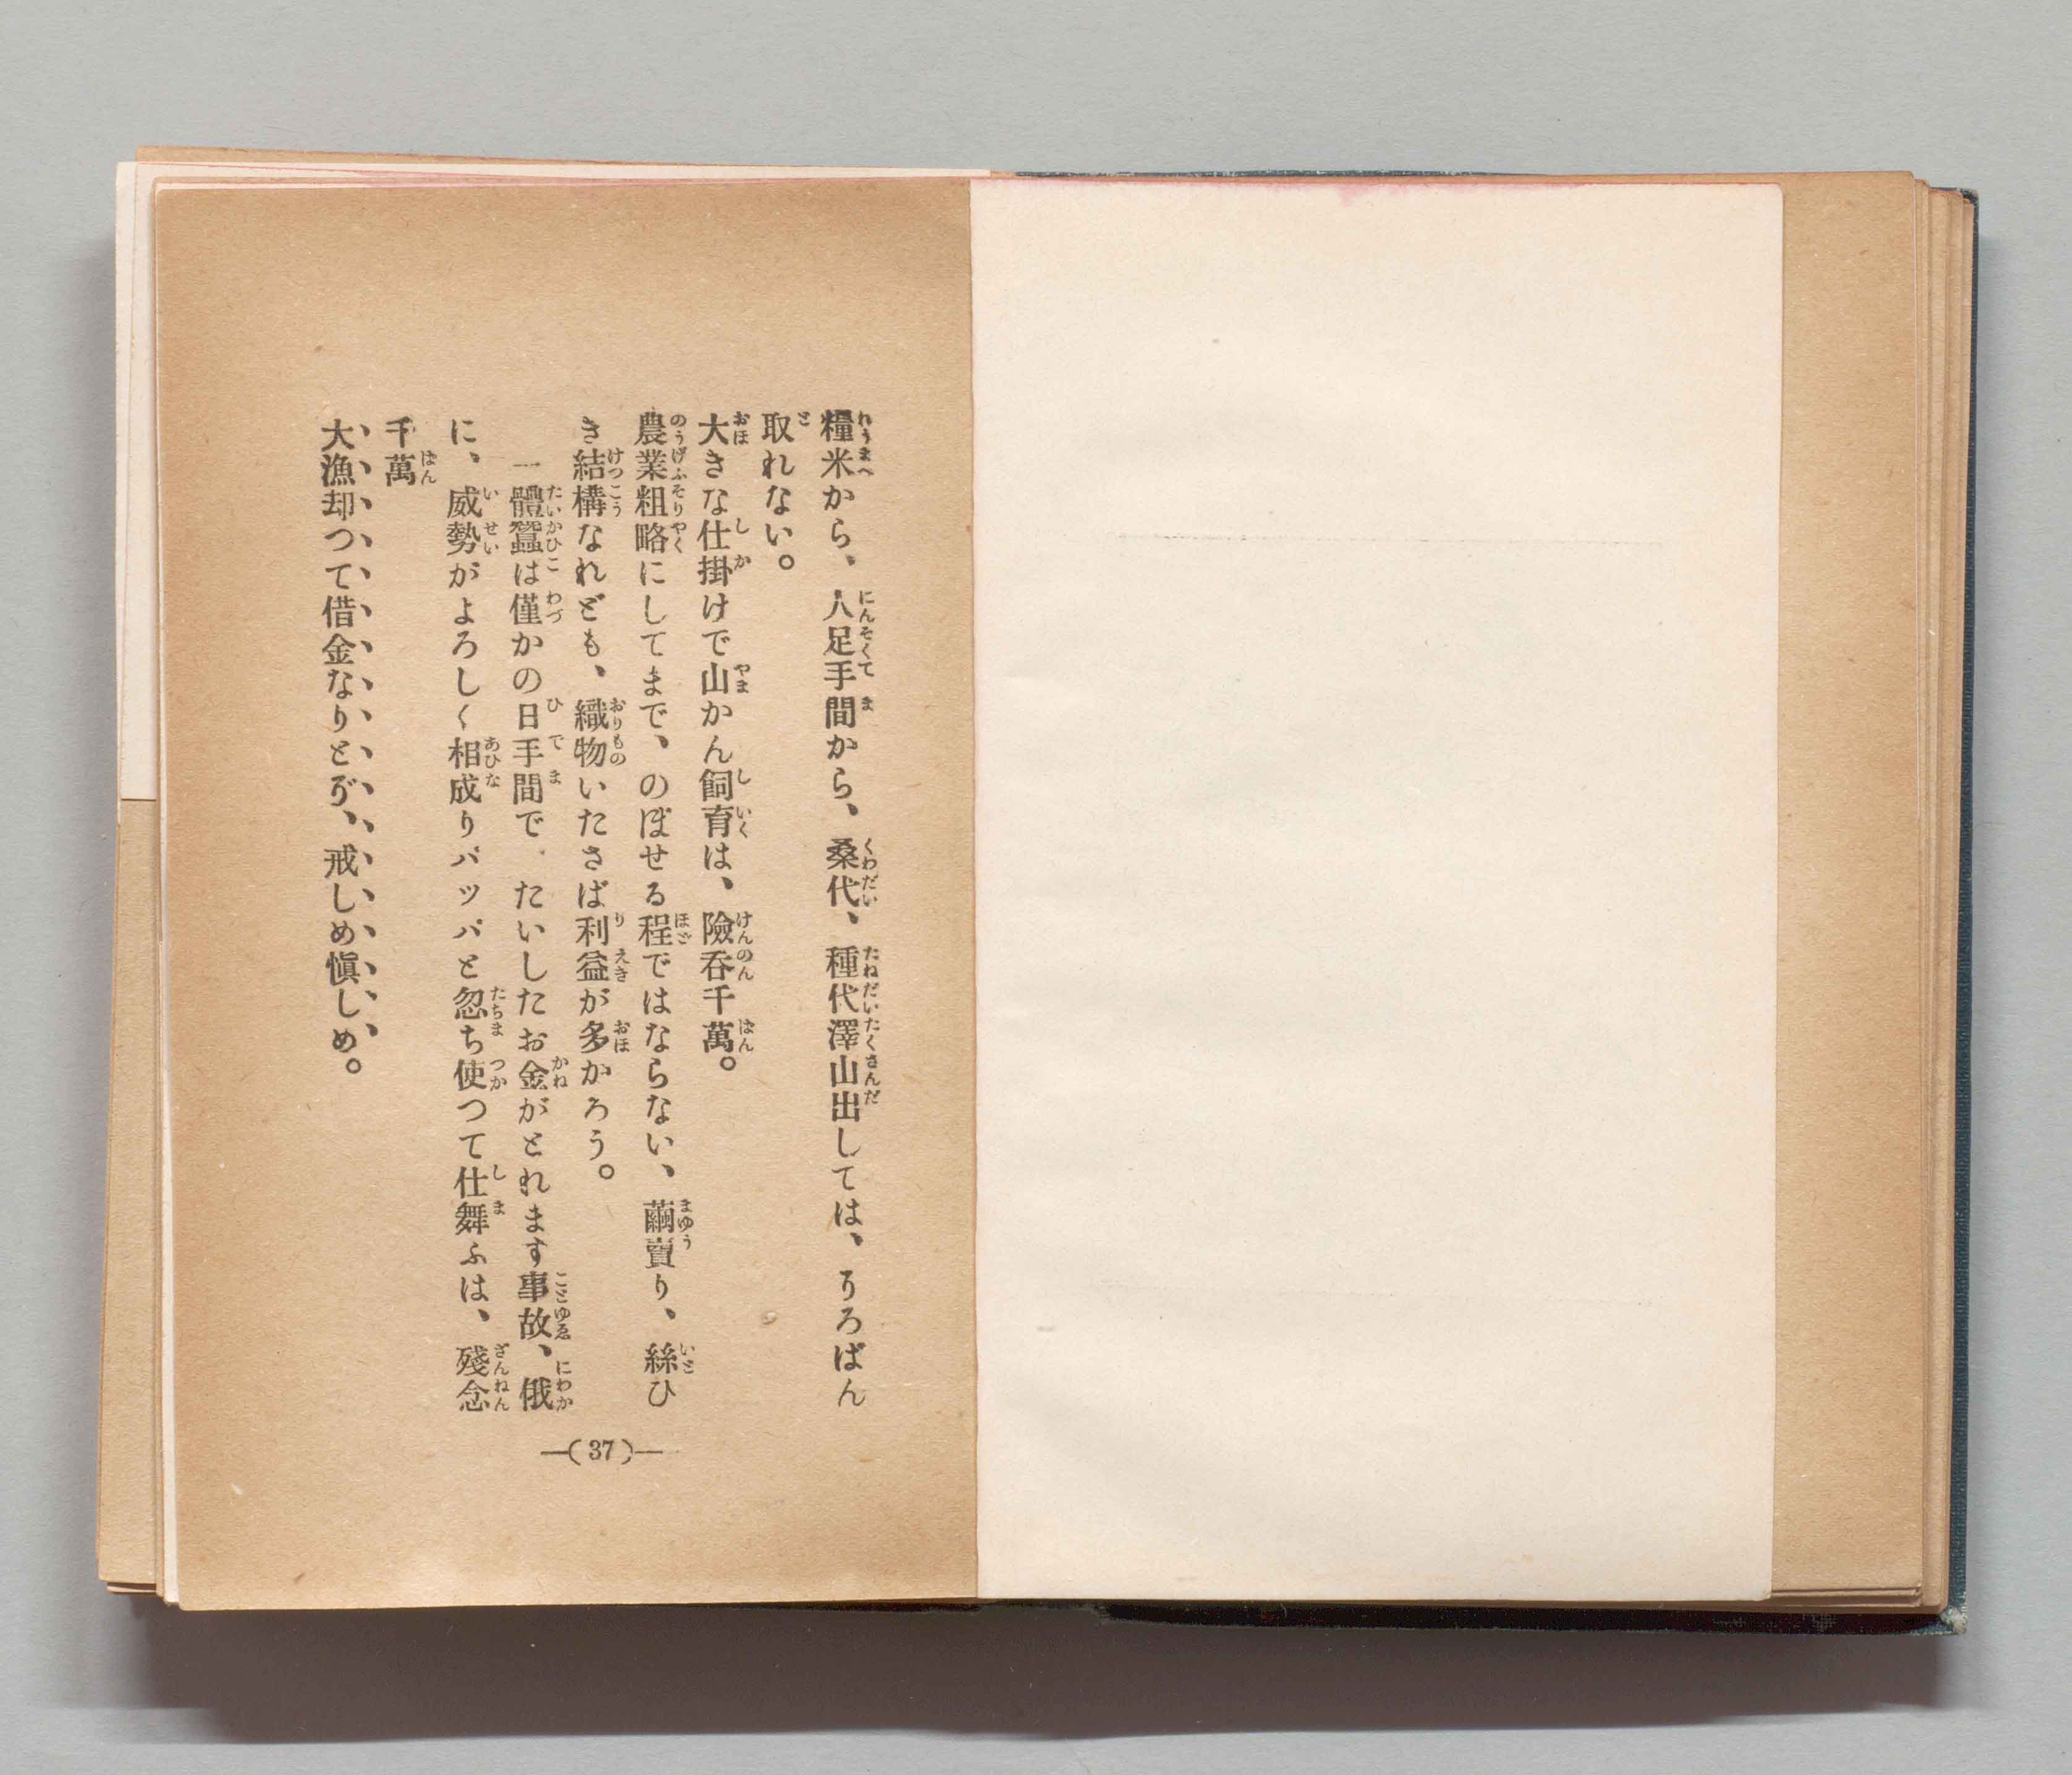 糧米から、人足手間から、桑代、種代澤山出しては、そろばん
取れない。
大きな仕掛けで山かん飼育は、險呑千萬。
農業粗略にしてまで、のぼせる程ではならない、繭賣り、絲ひ
き結構なれども、織物いたさば利益が多かろう。
一體蠶は僅かの日手間で、たいしたお金がとれます事故、俄
に、威勢がよろしく相成りパッパと忽ち使つて仕舞ふは、殘念
千萬
大漁却つて借金なりとぞ、戒しめ愼しめ。
—(37)—